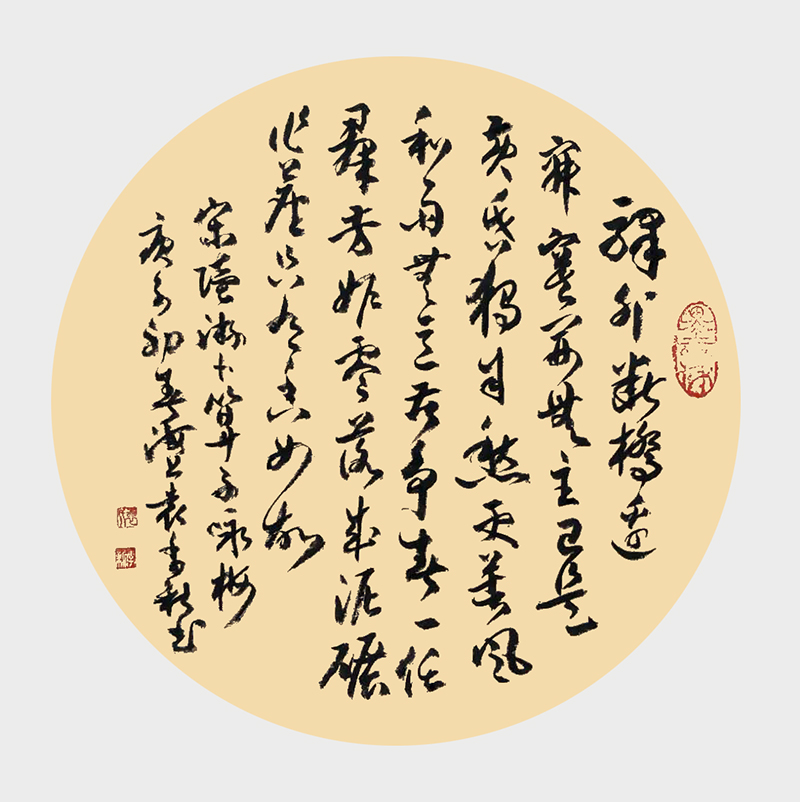 驛外斷橋邊
寂寞開無主已是
黃昏獨自愁更著風
和雨無意苦爭春一任
羣芳妒零落成泥碾
作塵只有香如故
宋陸游卜算子咏梅
庚子初春海上袁秋書